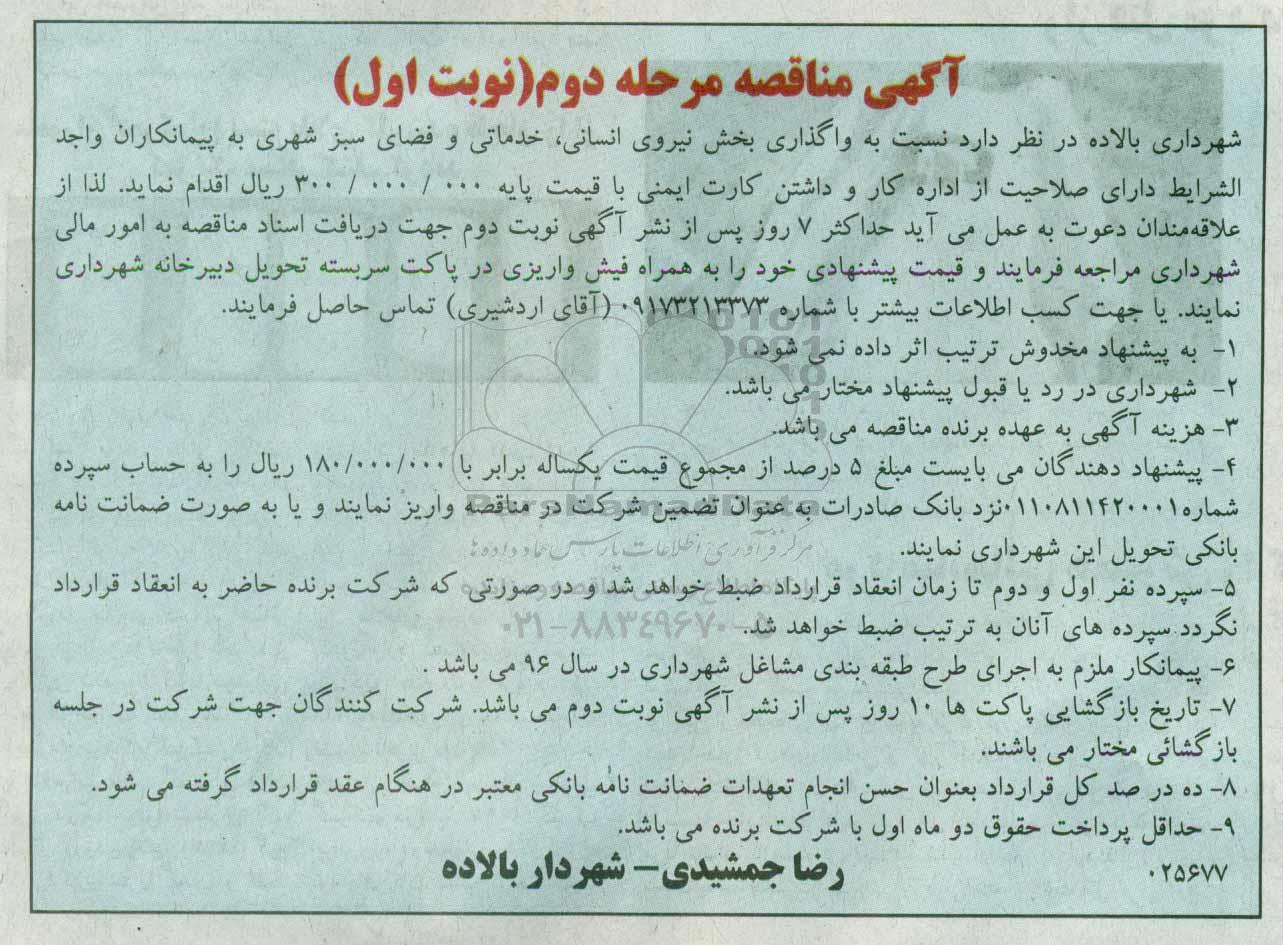 آگهی مناقصه مرحله دوم(نوبت اول)
شهرداری بالاده در نظر دارد نسبت به واگذاری بخش نیروی انسانی، خدماتی و فضای سبز شهری به پیمانکاران واجد
الشرایط دارای صلاحیت از اداره کار و داشتن کارت ایمنی با قیمت پایه ۰۰۰ / ۰۰۰ / ۳۰۰ ریال اقدام نماید. لذا از
علاقه‌مندان دعوت به عمل می آید حداکثر ۷ روز پس از نشر آگهی نوبت دوم جهت دریافت اسناد مناقصه به امور مالی
شهرداری مراجعه فرمایند و قیمت پیشنهادی خود را به همراه فیش واریزی در پاکت سربسته تحویل دبیرخانه شهرداری
نمایند. یا جهت کسب اطلاعات بیشتر با شماره ۰۹۱۷۳۲۱۳۳۷۳ (آقای اردشیری) تماس حاصل فرمایند.
۱- به پیشنهاد مخدوش ترتیب اثر داده نمی شود.
۲- شهرداری در رد یا قبول پیشنهاد مختار می باشد.
۳- هزینه آگهی به عهده برنده مناقصه می باشد.
۴- پیشنهاد دهندگان می بایست مبلغ ۵ درصد از مجموع قیمت یکساله برابر با ۱۸۰/۰۰۰/۰۰۰ ریال را به حساب سپرده
شماره۰۱۱۰۸۱۱۴۲۰۰۰۱نزد بانک صادرات به عنوان تضمین شرکت در مناقصه واریز نمایند و یا به صورت ضمانت نامه
بانکی تحویل این شهرداری نمایند.
۵- سپرده نفر اول و دوم تا زمان انعقاد قرارداد ضبط خواهد شد و در صورتی که شرکت برنده حاضر به انعقاد قرارداد
نگردد سپرده های آنان به ترتیب ضبط خواهد شد.
۶- پیمانکار ملزم به اجرای طرح طبقه بندی مشاغل شهرداری در سال ۹۶ می باشد .
۷- تاریخ بازگشایی پاکت ها ۱۰ روز پس از نشر آگهی نوبت دوم می باشد. شرکت کنندگان جهت شرکت در جلسه
بازگشائی مختار می باشند.
۸- ده در صد کل قرارداد بعنوان حسن انجام تعهدات ضمانت نامه بانکی معتبر در هنگام عقد قرارداد گرفته می شود.
۹- حداقل پرداخت حقوق دو ماه اول با شرکت برنده می باشد.
رضا جمشیدی- شهردار بالاده
۰۲۵۶۷۷
ParsNamadData
مرکز فرآوری اطلاعات پارس نماد داده ها
۰۲۱-۸۸۳۴۹۶۷۰-۵